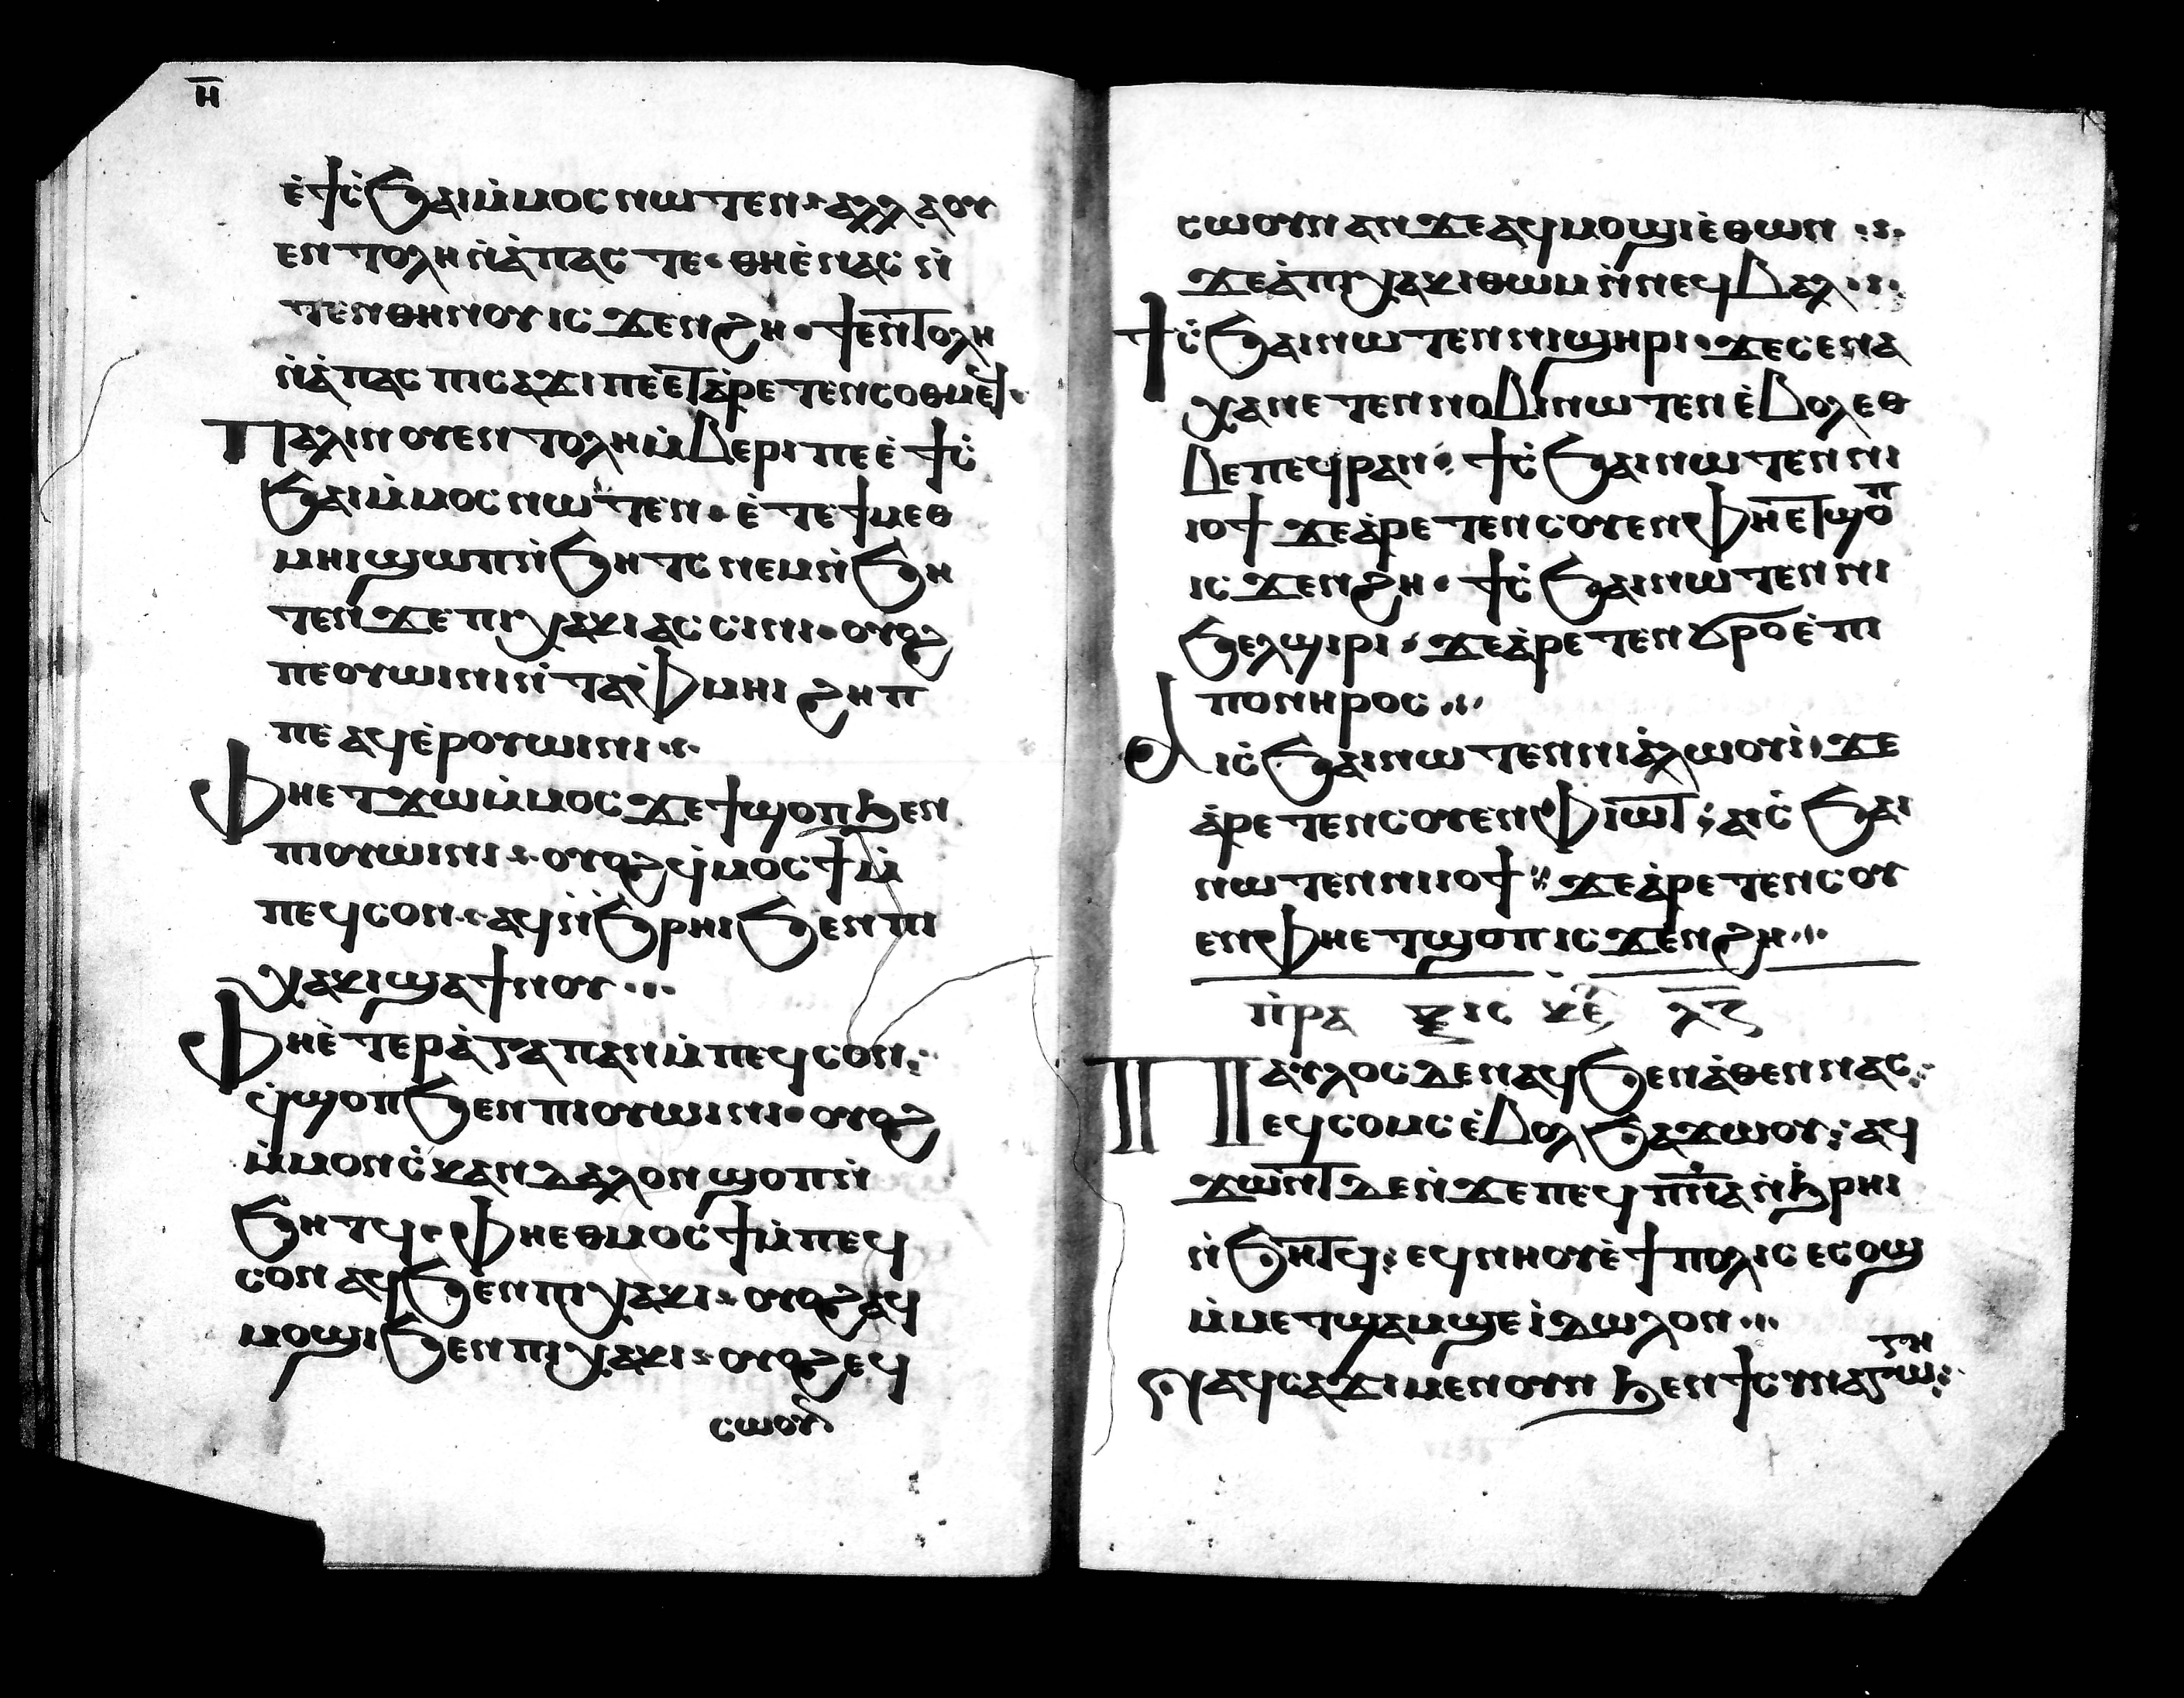 ⲏ̅
ⲉ̀ϯⲥ̀ϧⲁⲓⲙ̀ⲙⲟⲥⲛⲱⲧⲉⲛ· ⲁⲗⲗⲁⲟⲩ
ⲉⲛⲧⲟⲗⲏⲛ̀ⲁ̀ⲡⲁⲥⲧⲉ· ⲑⲏⲉ̀ⲛⲁⲥⲛ̀
ⲧⲉⲛⲑⲏⲛⲟⲩⲓⲥϫⲉⲛϩⲏ· ϯⲉⲛⲧⲟⲗⲏ
ⲛ̀ⲁ̀ⲡⲁⲥⲡⲓⲥⲁϫⲓⲡⲉⲉⲧⲁ̀ⲣⲉⲧⲉⲛⲥⲟⲑⲙⲉϥ·
Ⲡⲁⲗⲓⲛⲟⲩⲉⲛⲧⲟⲗⲏⲙ̀ⲃⲉⲣⲓⲡⲉⲉ̀ϯⲥ̀
ϧⲁⲓⲙ̀ⲙⲟⲥⲛⲱⲧⲉⲛ· ⲉ̀ⲧⲉϯⲙⲉⲑ
ⲙⲏⲓϣⲱⲡⲛ̀ϧⲏⲧⲥⲛⲉⲙⲛ̀ϧⲏ
ⲧⲉⲛϫⲉⲡⲓⲭⲁⲕⲓⲁⲥⲥⲓⲛⲓ· ⲟⲩⲟϩ
ⲡⲉⲟⲩⲱⲓⲛⲓⲛ̀ⲧⲁⲫⲙⲏⲓϩⲏⲡ
ⲡⲉⲁϥⲉ̀ⲣⲟⲩⲱⲓⲛⲓ·:·
Ⲫⲏⲉⲧϫⲱⲙ̀ⲙⲟⲥϫⲉϯϣⲟⲡϧⲉⲛ
ⲡⲓⲟⲩⲱⲓⲛⲓ· ⲟⲩⲟϩϥ̀ⲙⲟⲥϯⲙ̀
ⲡⲉϥⲥⲟⲛ· ⲁϥⲛ̀ϧⲣⲏⲓϧⲉⲛⲡⲓ
ⲭⲁⲕⲓϣⲁϯⲛⲟⲩ···
Ⲫⲏⲉ̀ⲧⲉⲣⲁ̀ⲅⲁⲡⲁⲛⲙ̀ⲡⲉϥⲥⲟⲛ:
ϥ̀ϣⲟⲡϧⲉⲛⲡⲓⲟⲩⲱⲓⲛⲓ· ⲟⲩⲟϩ
ⲙ̀ⲙⲟⲛⲥ̀ⲕⲁⲛⲇⲁⲗⲟⲛϣⲟⲡⲛ̀
ϧⲏⲧϥ· Ⲫⲏⲉⲑⲙⲟⲥϯⲙ̀ⲡⲉϥ
ⲥⲟⲛⲁϥϧⲉⲛⲡⲓⲭⲁⲕⲓ· ⲟⲩⲟϩⲁϥ
ⲙⲟϣⲓϧⲉⲛⲡⲓⲭⲁⲕⲓ· ⲟⲩⲟϩⲉϥ
ⲥⲱⲟⲩⲛ
ⲥⲱⲟⲩⲛⲁⲛϫⲉⲁϥⲙⲟϣⲓⲉ̀ⲑⲱⲛ·:·
ϫⲉⲁ̀ⲡⲓⲭⲁⲕⲓⲑⲱⲙⲛ̀ⲛⲉϥⲃⲁⲗ·:·
ϯⲥ̀ϧⲁⲓⲛⲱⲧⲉⲛⲛⲓϣⲏⲣⲓ· ϫⲉⲥⲉⲛⲁ
ⲭⲁⲛⲉⲧⲉⲛⲛⲟⲃⲓⲛⲱⲧⲉⲛⲉ̀ⲃⲟⲗⲉⲑ
ⲃⲉⲡⲉϥⲣⲁⲛ: ϯⲥ̀ϧⲁⲓⲛⲱⲧⲉⲛⲛⲓ
ⲓⲟϯϫⲉⲁ̀ⲣⲉⲧⲉⲛⲥⲟⲩⲉⲛⲫⲏⲉⲧϣⲟⲡ
ⲓⲥϫⲉⲛϩⲏ· ϯⲥ̀ϧⲁⲓⲛⲱⲧⲉⲛⲛⲓ
ϧⲉⲗϣⲓⲣⲓ· ϫⲉⲁ̀ⲣⲉⲧⲉⲛϭⲣⲟⲉ̀ⲡⲓ
ⲡⲟⲛⲏⲣⲟⲥ·:·
Ⲁⲓⲥ̀ϧⲁⲓⲛⲱⲧⲉⲛⲛⲓⲁ̀ⲗⲱⲟⲩⲓ̀· ϫⲉ
ⲁ̀ⲣⲉⲧⲉⲛⲥⲟⲩⲉⲛⲫⲓⲱⲧ: ⲁⲓⲥ̀ϧⲁⲓ
ⲛⲱⲧⲉⲛⲛⲓⲓⲟϯ: ϫⲉⲁ̀ⲣⲉⲧⲉⲛⲥⲟⲩ
ⲉⲛⲫⲏⲉⲧϣⲟⲡⲓⲥϫⲉⲛϩⲏ·:·
ⲡ̀ⲣⲁ ⲝⲓⲥ ⲕⲉ ⲗ̅ⲍ̅
Ⲡⲁⲩⲗⲟⲥⲇⲉⲛⲁϥϧⲉⲛⲁ̀ⲑⲉⲛⲛⲁⲥ:
ⲉϥⲥⲟⲙⲥⲉ̀ⲃⲟⲗϧⲁϫⲱⲟⲩ: ⲁϥ
ϫⲱⲛⲧⲇⲉⲛ̀ϫⲉⲡⲉϥⲡ̅ⲛ̅ⲁⲛ̀ϧⲣⲏⲓ
ⲛ̀ϧⲏⲧϥ: ⲉϥⲛⲏⲟⲩⲉ̀ϯⲡⲟⲗⲓⲥⲉⲥⲟϣ
ⲙ̀ⲙⲉⲧϣⲁⲙϣⲉⲓ̀ⲇⲱⲗⲟⲛ···
Ⲛⲁϥⲥⲁϫⲓⲙⲉⲛⲟⲩⲛϧⲉⲛϯⲥⲩⲛⲁⲅⲱⲅⲏ: